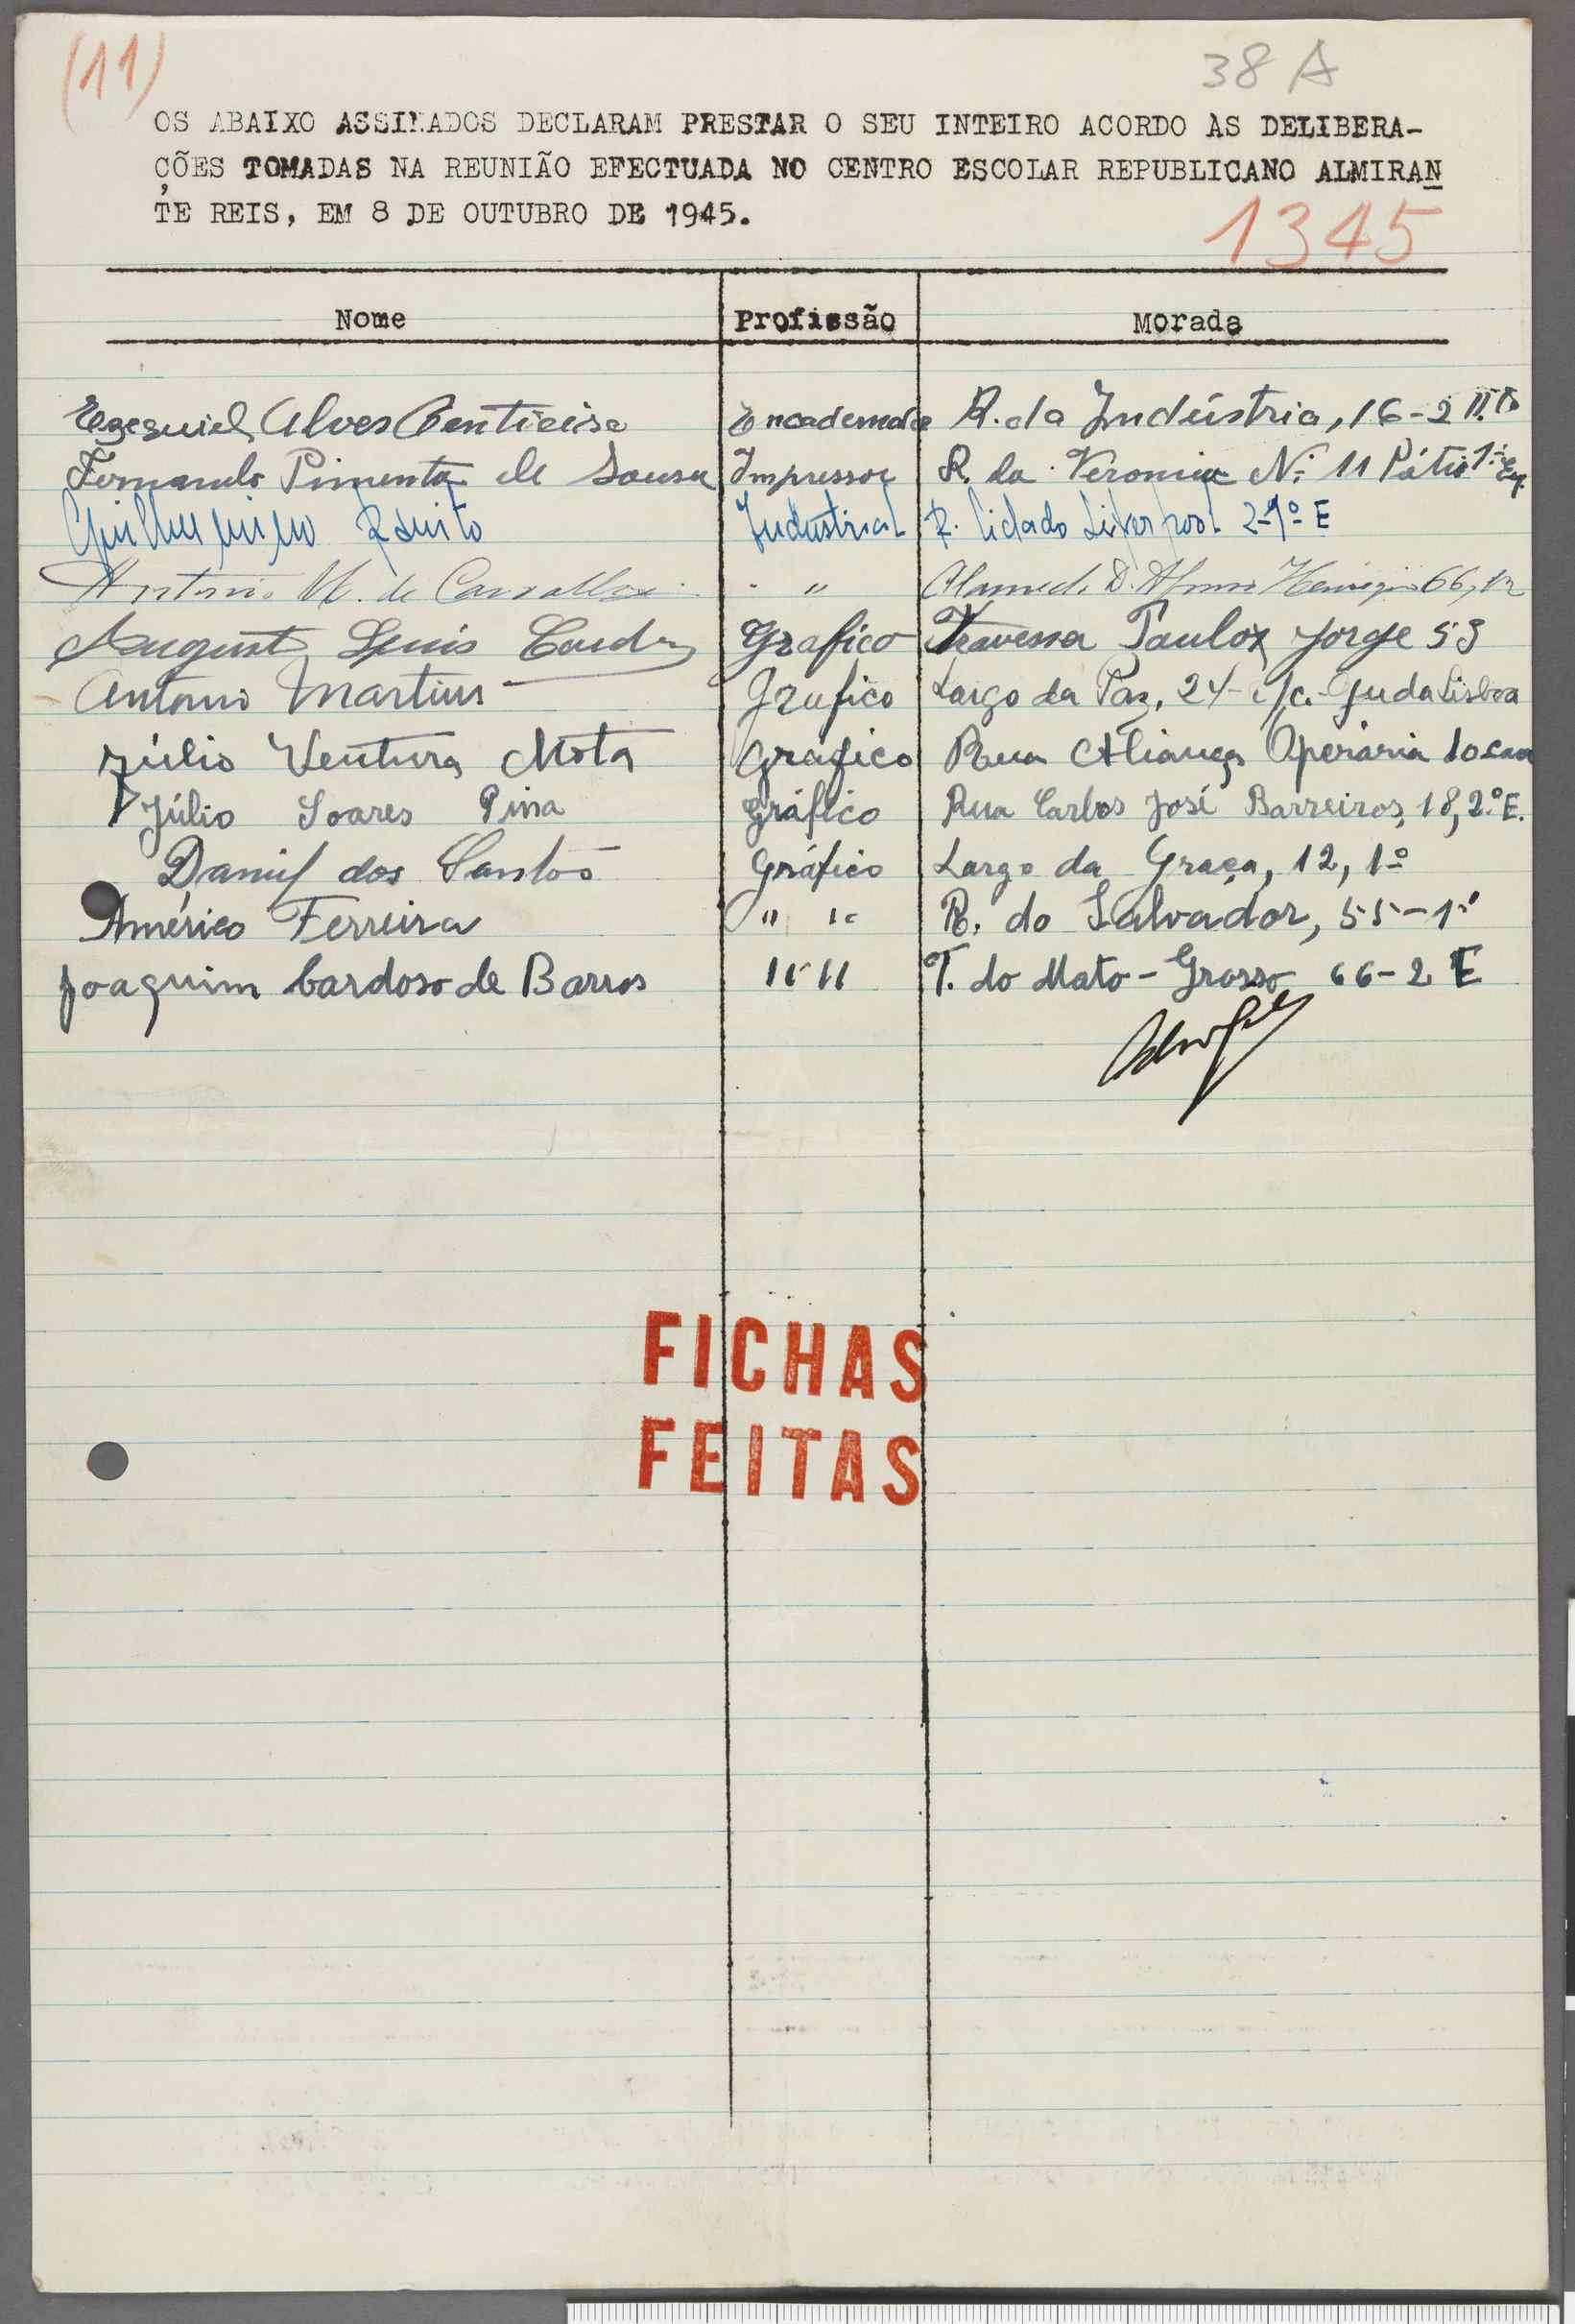 (11)
38 A
OS ABAIXO ASSINADOS DECLARAM PRESTAR O SEU INTEIRO ACORDO AS DELIBERA-
ÇÕES TOMADAS NA REUNIÃO EFECTUADA NO CENTRO ESCOLAR REPUBLICANO ALMIRAN
TE REIS, EM 8 DE OUTUBRO DE 1945.
1345
Nome Profissão Morada
Ezequiel Alves R. da Indústria, 16-2
Fernando Pimenta de Sousa Impressor R. da Veronica Nº 11 Pátio 1º Esq.
Guilhermino Industrial R. Cidade Liverpool 2-1º E
Antonio M. de Carvalho " Alameda D. Afonso Henriques 66,
August Luis Grafico Travessa Paulo Jorge 53
Antonio Martins Grafico Largo da Paz, 24 r/c. Ajuda Lisboa
Júlio Ventura Mota Gráfico Rua Aliança Operária 10
Júlio Soares Pina Gráfico Rua Carlos José Barreiros, 18, 2.º E.
Daniel dos Santos Gráfico Largo da Graça, 12, 1º
Américo Ferreira " " R. do Salvador, 55-1º
Joaquim Cardoso de Barros " " T. do Mato-Grosso 66-2 E
FICHAS
FEITAS